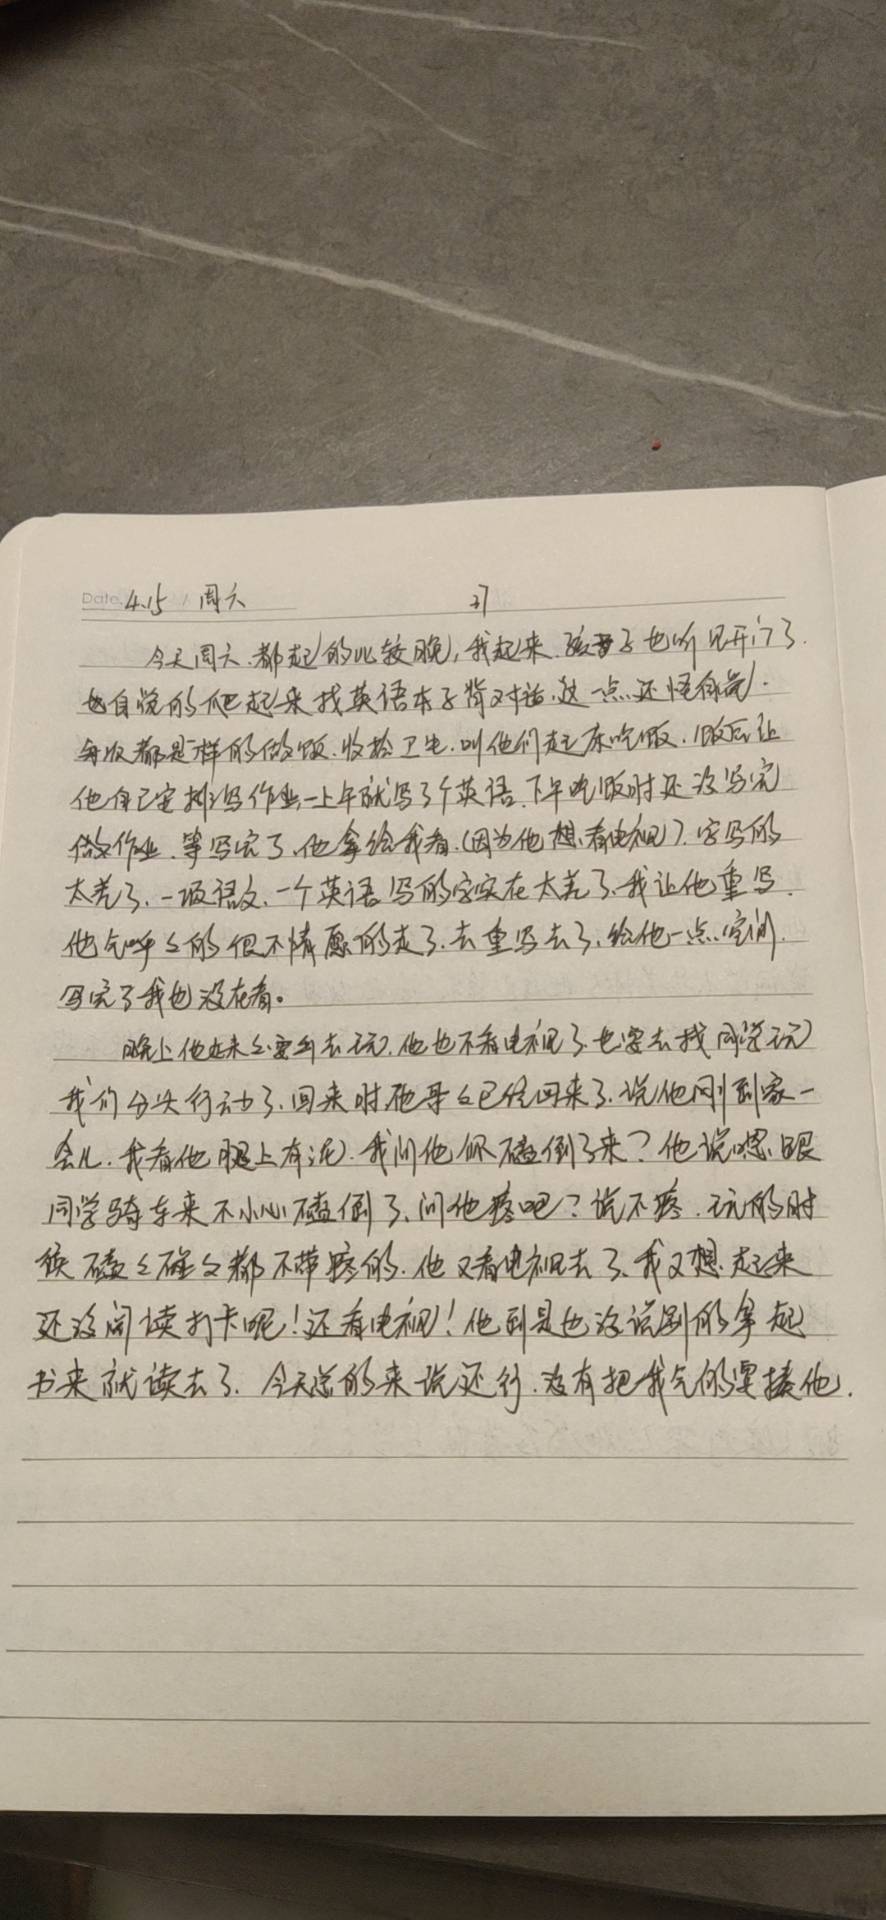 Date. 4.15 周六 27
今天周六.都起的比较晚,我起来.孩子也听见开门了.
也自觉的爬起来找英语本子背对话.这一点还怪自觉.
每次都是一样的做饭.收拾卫生.叫他们起床吃饭.饭后让
他自己安排写作业,一上午就写了个英语.下午吃饭时还没写完
做作业.等写完了.他拿给我看.(因为他想看电视).字写的
太差了.一项语文.一个英语写的字实在太差了.我让他重写.
他气呼々的很不情愿的走了.去重写去了.给他一点空间.
写完了我也没在看。
晚上他走来々要出去玩.他也不看电视了也要去找同学玩
我们分头行动了.回来时他哥々已经回来了.说他刚到家一
会儿.我看他腿上有泥.我问他你磕倒了来?他说嗯.跟
同学骑车来不小心磕倒了.问他疼吧?说不疼.玩的时
候磕々碰々都不带疼的.他又看电视去了.我又想起来
还没阅读打卡呢!还看电视!他到是也没说别的拿起
书来就读去了.今天总的来说还行.没有把我气的要揍他.